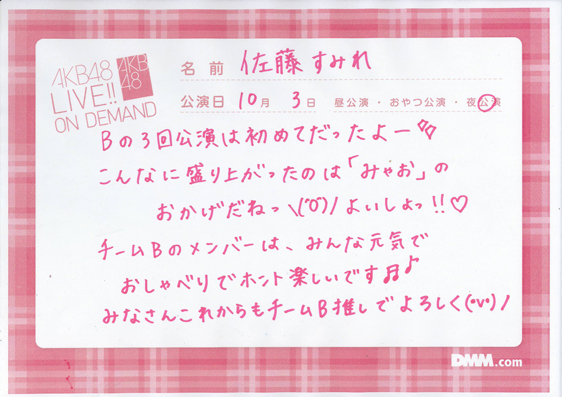 AKB48
LIVE!!
ON DEMAND
AKB
48
名前 佐藤すみれ
公演日 10月 3日 昼公演・おやつ公演・夜公演
Bの3回公演は初めてだったよー
こんなに盛り上がったのは「みゃお」の
おかげだねっ\(°O°)/よいしょっ!!♡
チームBのメンバーは、みんな元気で
おしゃべりでホント楽しいです♬♪
みなさんこれからもチームB推しでよろしく(°v°)ノ
DMM.com